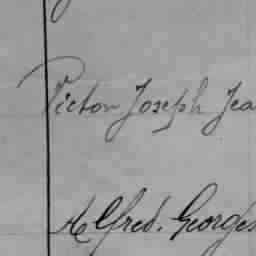 Victor Joseph Jea
Alfred. Georges